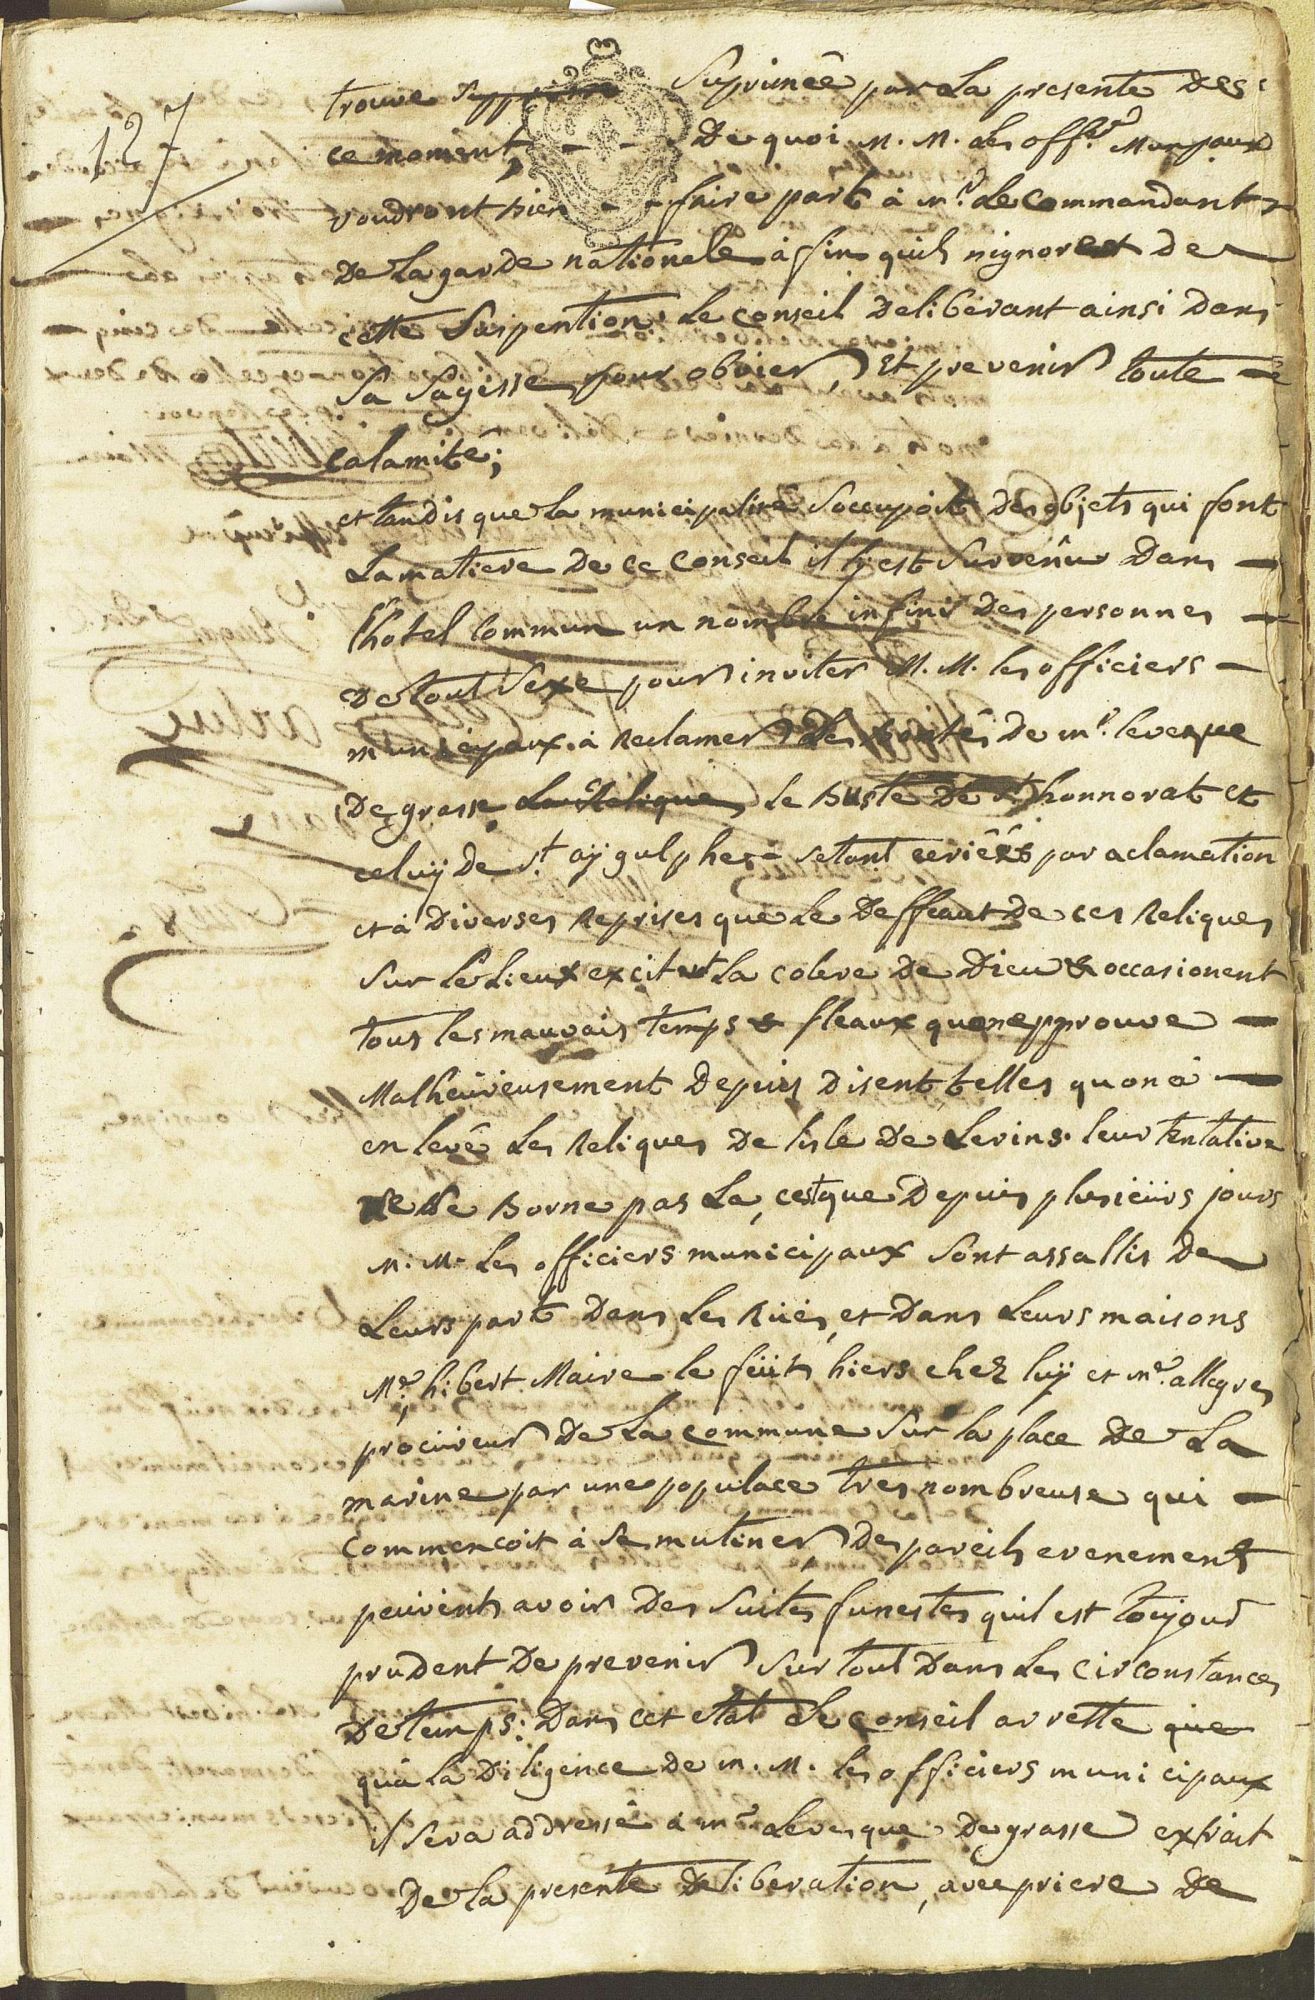 127
trouve supprimée Suprimée par La presente des
ce moment, De quoi M. M. les offrs. Munpaux
voudront bien faire part à mr. Le Commandant
De La garde nationele affin quils nignorent de
cette Suspention. Le Conseil Deliberant ainsi dans
Sa Sagesse pour obvier, Et prevenir toute
calamité;
et tandis que la municipalité Soccupoit des objets qui font
La matiere De ce Conseil il ly est Survenu Dans
lhotel Commun un nombre infini Des personnes
De tout Sexe pour inviter M. M. les officiers
municipaux à Reclamer des bontés de mr. leveque
De grasse Les Reliques le Buste De St. honnorat et
celuy de St. aygulphe - setant ecriées par aclamation
et à Diverses Reprises que Le Deffeaut De ces Reliques
Sur Le Lieux excitent La colere De Dieu & occasionent
tous les mauvais temps & fleaux quon epprouve
Malheureusement Depuis Disent telles quon a
enlevé Les Reliques De lisle De Lerins. leur tentative
Ne se Borne pas La, cest que Depuis plusieurs jours
M. M. Les officiers municipaux Sont assallis De
Leurs part Dans Les Rües, et Dans Leurs maisons
Mr. hibert Maire le füt hiers chez luy et mr. allegres
procureur De La Commune Sur la place De La
marine par une populace tres nombreuse qui
Commencoit à se mutiner, Des pareils evenements
peuvents avoir Des Suites funestes quil est toujour
prudent De prevenir Sur tout Dans Les circonstances
De temps: Dans cet etat Le conseil arrette que
qu'a la Diligence de m. M. les officiers municipaux
il Sera addressé à mr. Levesque De grasse extrait
De la presente Deliberation, avec priere De